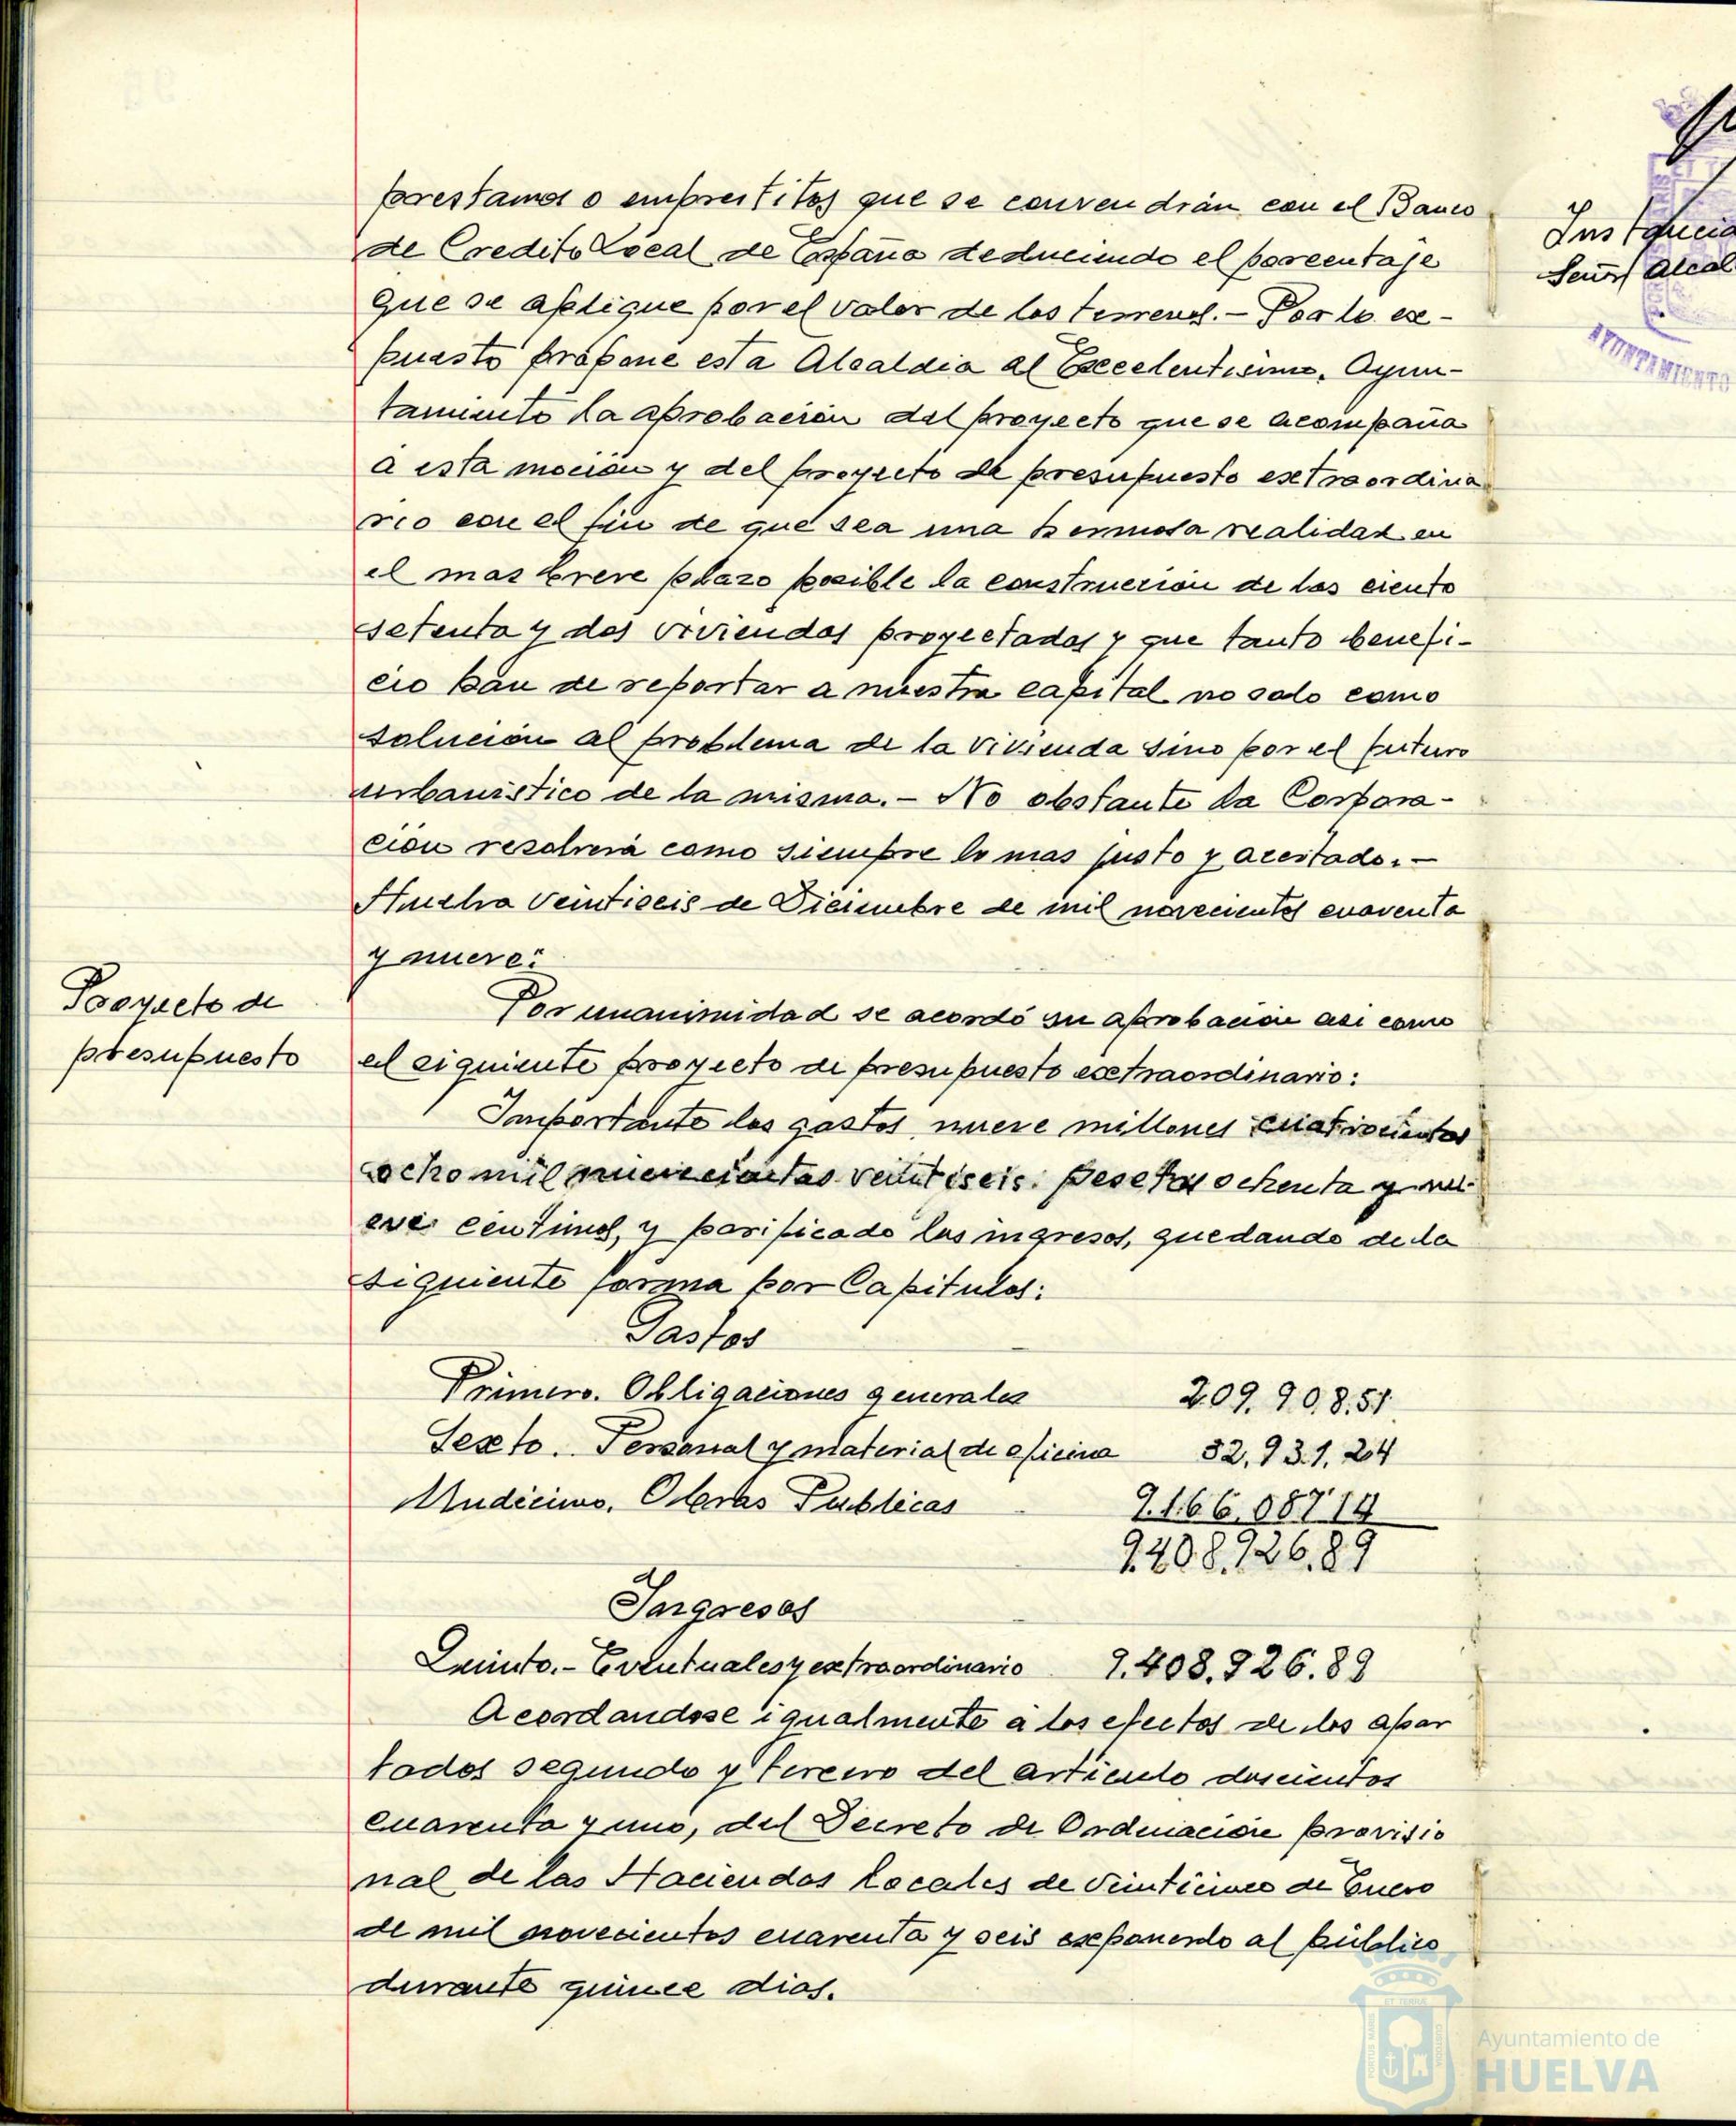 prestamos o emprestitos que se convendrán con el Banco
de Credito Local de España deduciendo el porcentaje
que se aplique por el valor de los terrenos.- Por lo ex-
puesto propone esta Alcaldia al Excelentisimo, Ayun-
tamiento la aprobación del proyecto que se acompaña
a esta moción y del proyecto de presupuesto extraordina
rio con el fin de que sea una hermosa realidad en
el mas breve plazo posible la construcción de las ciento
setenta y dos viviendas proyectadas y que tanto benefi-
cio han de reportar a nuestra capital no solo como
solución al problema de la vivienda sino por el futuro
urbanistico de la misma.- No obstante la Corpora-
ción resolverá como siempre lo mas justo y acertado.-
Huelva veintiseis de Diciembre de mil novecientos cuarenta
y nueve:
Proyecto de
presupuesto
Por unanimidad se acordó su aprobación asi como
el siguiente proyecto de presupuesto extraordinario:
Importante los gastos nueve millones cuatrocientos
ocho mil novecientas veintiseis. pesetas ochenta y nu
eve centimos, y parificado los ingresos, quedando de la
siguiente forma por Capitulos:
Gastos
Primero. Obligaciones generales 209.908.51
Sexto. Personal y material de oficina 32.931.24
Undécimo. Obras Publicas 9.166.087 14
9.408.926.89
Ingresos
Quinto.- Eventuales y extraordinario 9.408.926.89
Acordandose igualmente a los efectos de los apar
tados segundo y tercero del articulo doscientos
cuarenta y uno, del Decreto de Ordenación provisio
nal de las Haciendas Locales de veinticinco de Enero
de mil novecientos cuarenta y seis exponerlo al público
durante quince dias.
Señor Alcal
AYUNTAMIENTO
Ayuntamiento de
HUELVA